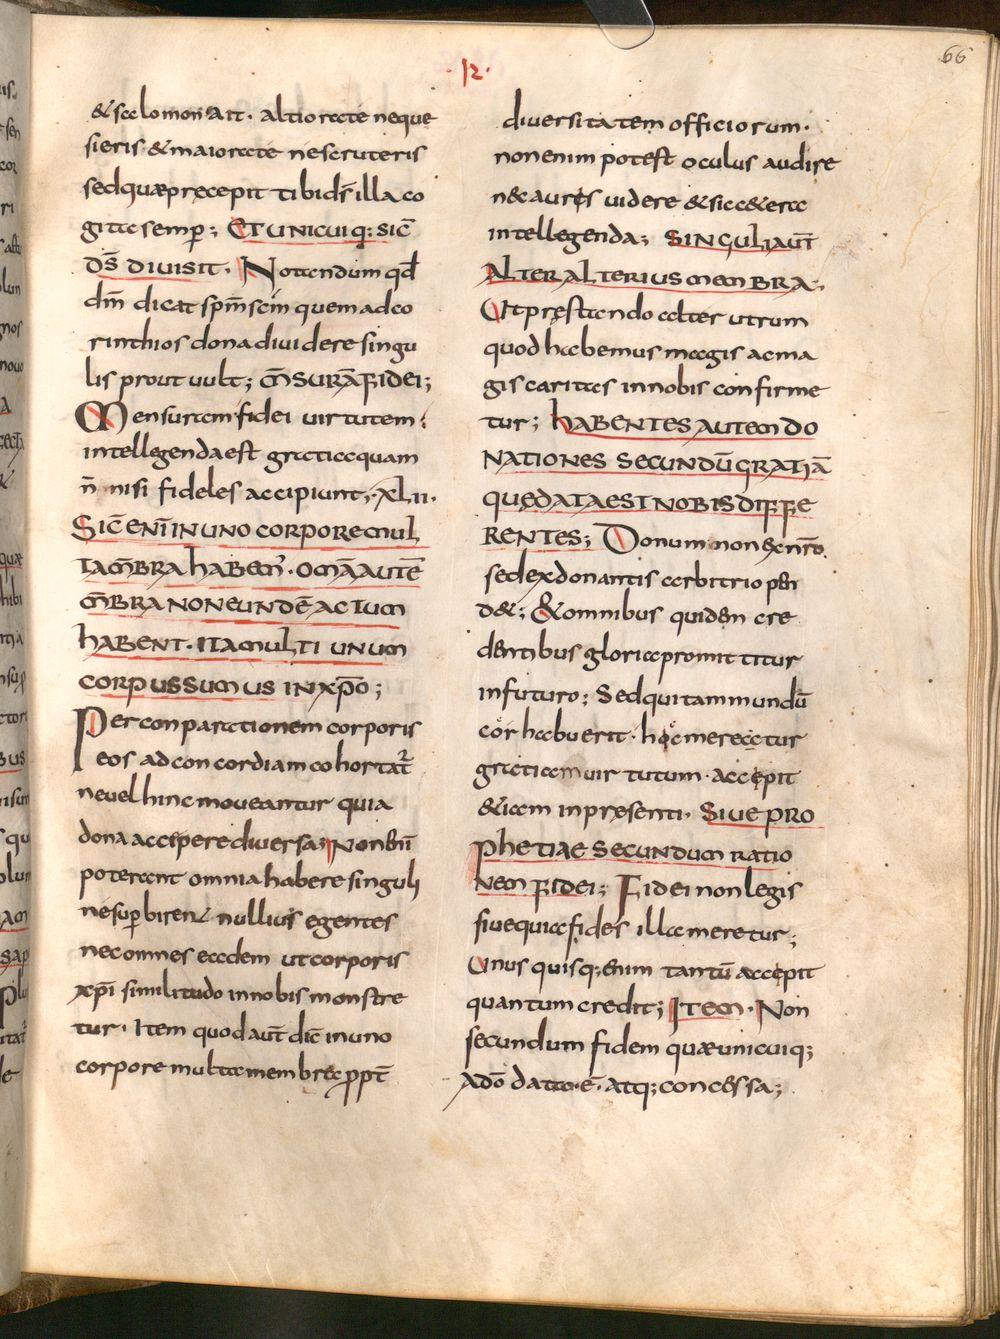 66
·R·
& salomon ait · altiora te ne que
sieris · & maiora te ne scruteris
sed quæ precepit tibi d̄s illa co
gita semp̄; ET UNICUIQ: SIC̄
D̄S DIVISIT · Notandum qđ
dm̄ dicat sp̄m sc̄m quem ad co
rinthios dona dividere singu
lis prout vult; M̄SURĀ FIDEI;
Mensuram fidei virtutem
intellegenda est gratia quam
n̄ nisi fideles accipiunt; ·XLII·
SIC ENĪ IN UNO CORPORE MUL
TA M̄BRA HABEM᾽ · OMĀ AUTĒ
M̄BRA NON EUNDĒ ACTUM
HABENT · ITA MULTI UNUM
CORPUS SUMUS IN XP̄O;
Per conparationem corporis
eos ad concordiam cohortat̄
ne vel hinc moveantur quia
dona accipere diversa; Non enī
poterant omnia habere singuli
ne sup̄birent & nullius egentes
nec omnes eadem ut corporis
xp̄i similitudo in nobis monstra
tur · Item quod aut̄ dic̄ in uno
corpore multa membra ꝓpt̄
diversitatem officiorum ·
non enim potest oculus audire
n& aures videre & sic c&era
intellegenda; SINGULI AUT̄
ALTER ALTERIUS MEMBRA ·
Ut prestando alter utrum
quod habemus magis ac ma
gis caritas in nobis confirme
tur; HABENTES AUTEM DO
NATIONES SECUNDŪ GRATIĀ
QUE DATA EST NOBIS DIFFE
RENTES; Donum non ex nr̄o
sed ex donantis arbitrio pen
d&; & omnibus quidem cre
dentibus gloria promittitur
in futuro; Sed qui tam mundū
cor habuerit · hoc mereatur
gratiam virtutum · accepit
& iam in presenti · SIVE PRO
PHETIAE SECUNDUM RATIO
NEM FIDEI; Fidei non legis
sive quia fides illa meretur;
Unus quisq; enim tantū accepit
quantum credit; ITEM · Non
secundum fidem quæ unicuiq;
A dō data · ē · atq; concessa;